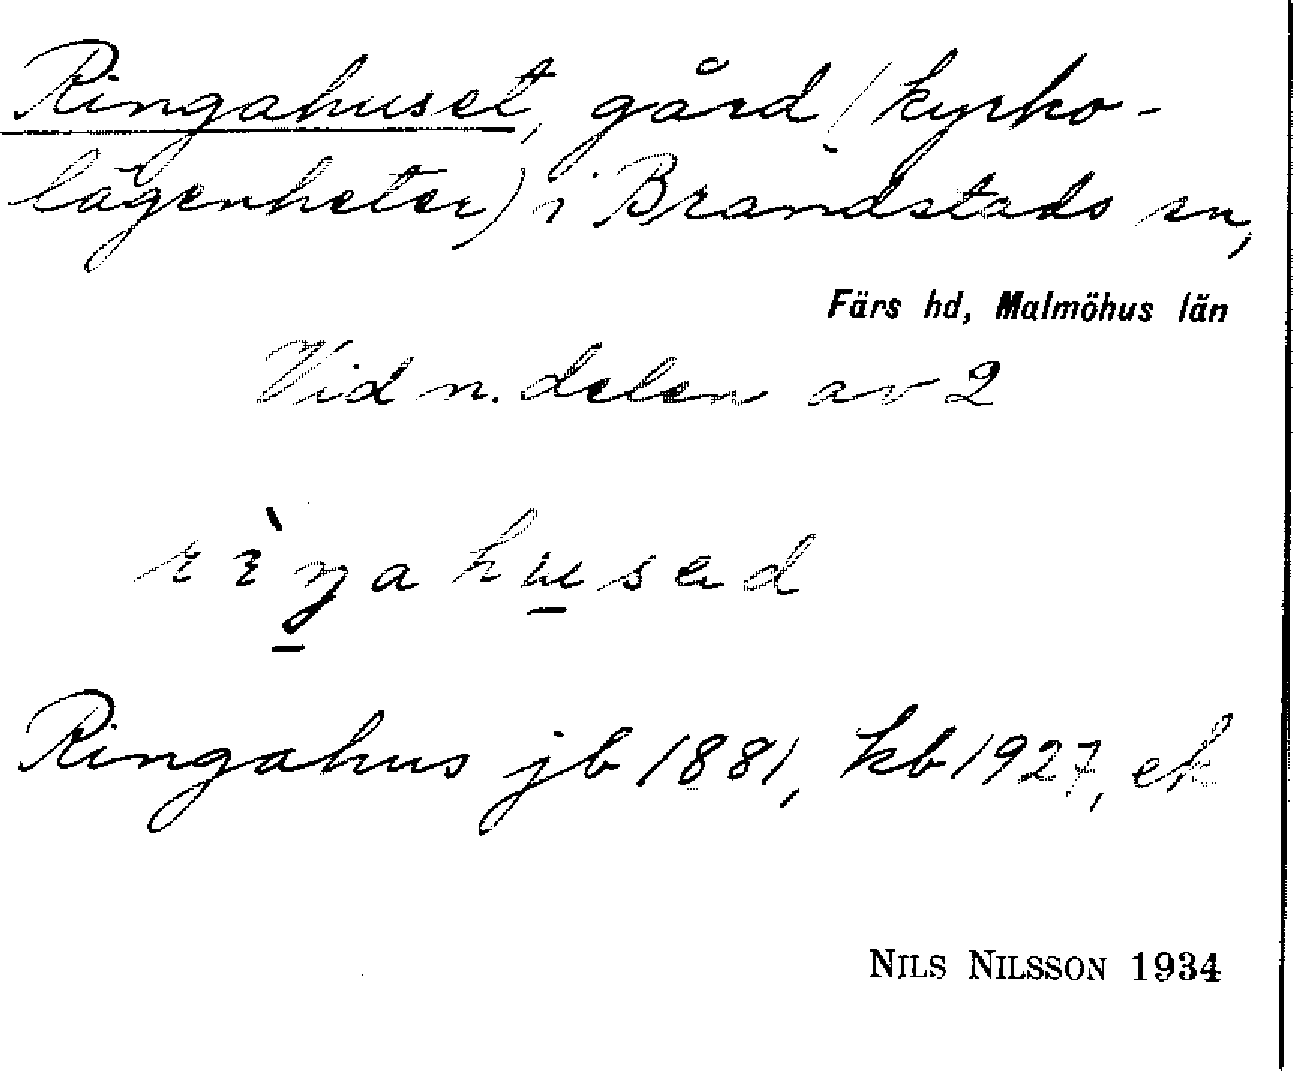 Ringahuset, gård (kyrko-
lägenheter) i Brandstads sn,
Färs hd, Malmöhus län
Vid n. delen av 2
rìŋahusəd
Ringahus jb 1881, kb 1927, ek
NILS NILSSON 1934